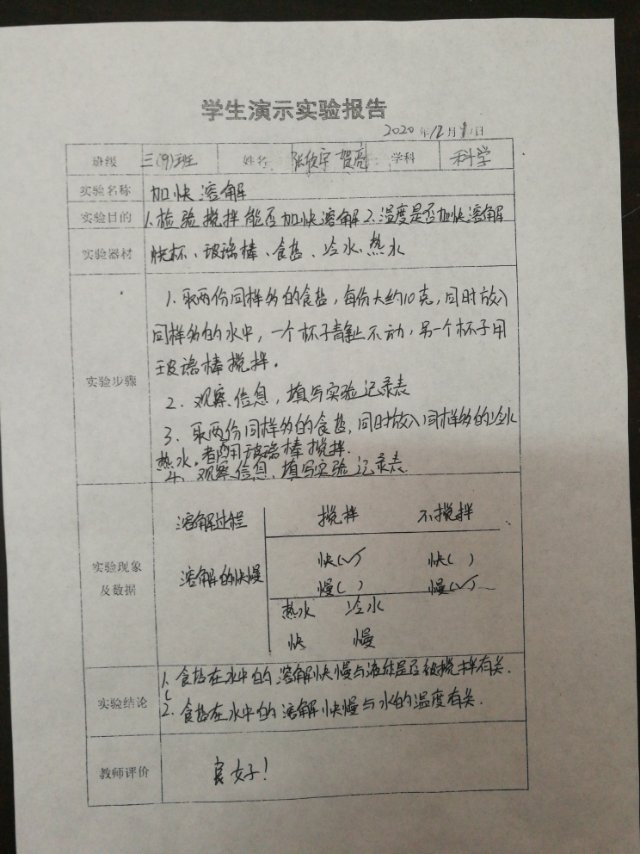 学生演示实验报告
2020年12月1日
班级 三(9)班 姓名 张欣宇 贺亮 学科 科学
实验名称 加快溶解
实验目的 1.检验搅拌能否加快溶解2.温度是否加快溶解
实验器材 烧杯、玻璃棒、食盐、冷水、热水
实验步骤
1.取两份同样多的食盐,每份大约10克,同时放入
同样多的水中,一个杯子静止不动,另一个杯子用
玻璃棒搅拌。
2.观察信息,填写实验记录表
3.取两份同样多的食盐,同时放入同样多的冷水
热水。都用玻璃棒搅拌.
4.观察信息,填写实验记录表.
实验现象及数据
溶解过程 搅拌 不搅拌
溶解的快慢 快(√) 快( )
慢( ) 慢(√)
热水 冷水
快 慢
实验结论
1.食盐在水中的溶解快慢与液体是否被搅拌有关.
2.食盐在水中的溶解快慢与水的温度有关.
教师评价 良好!